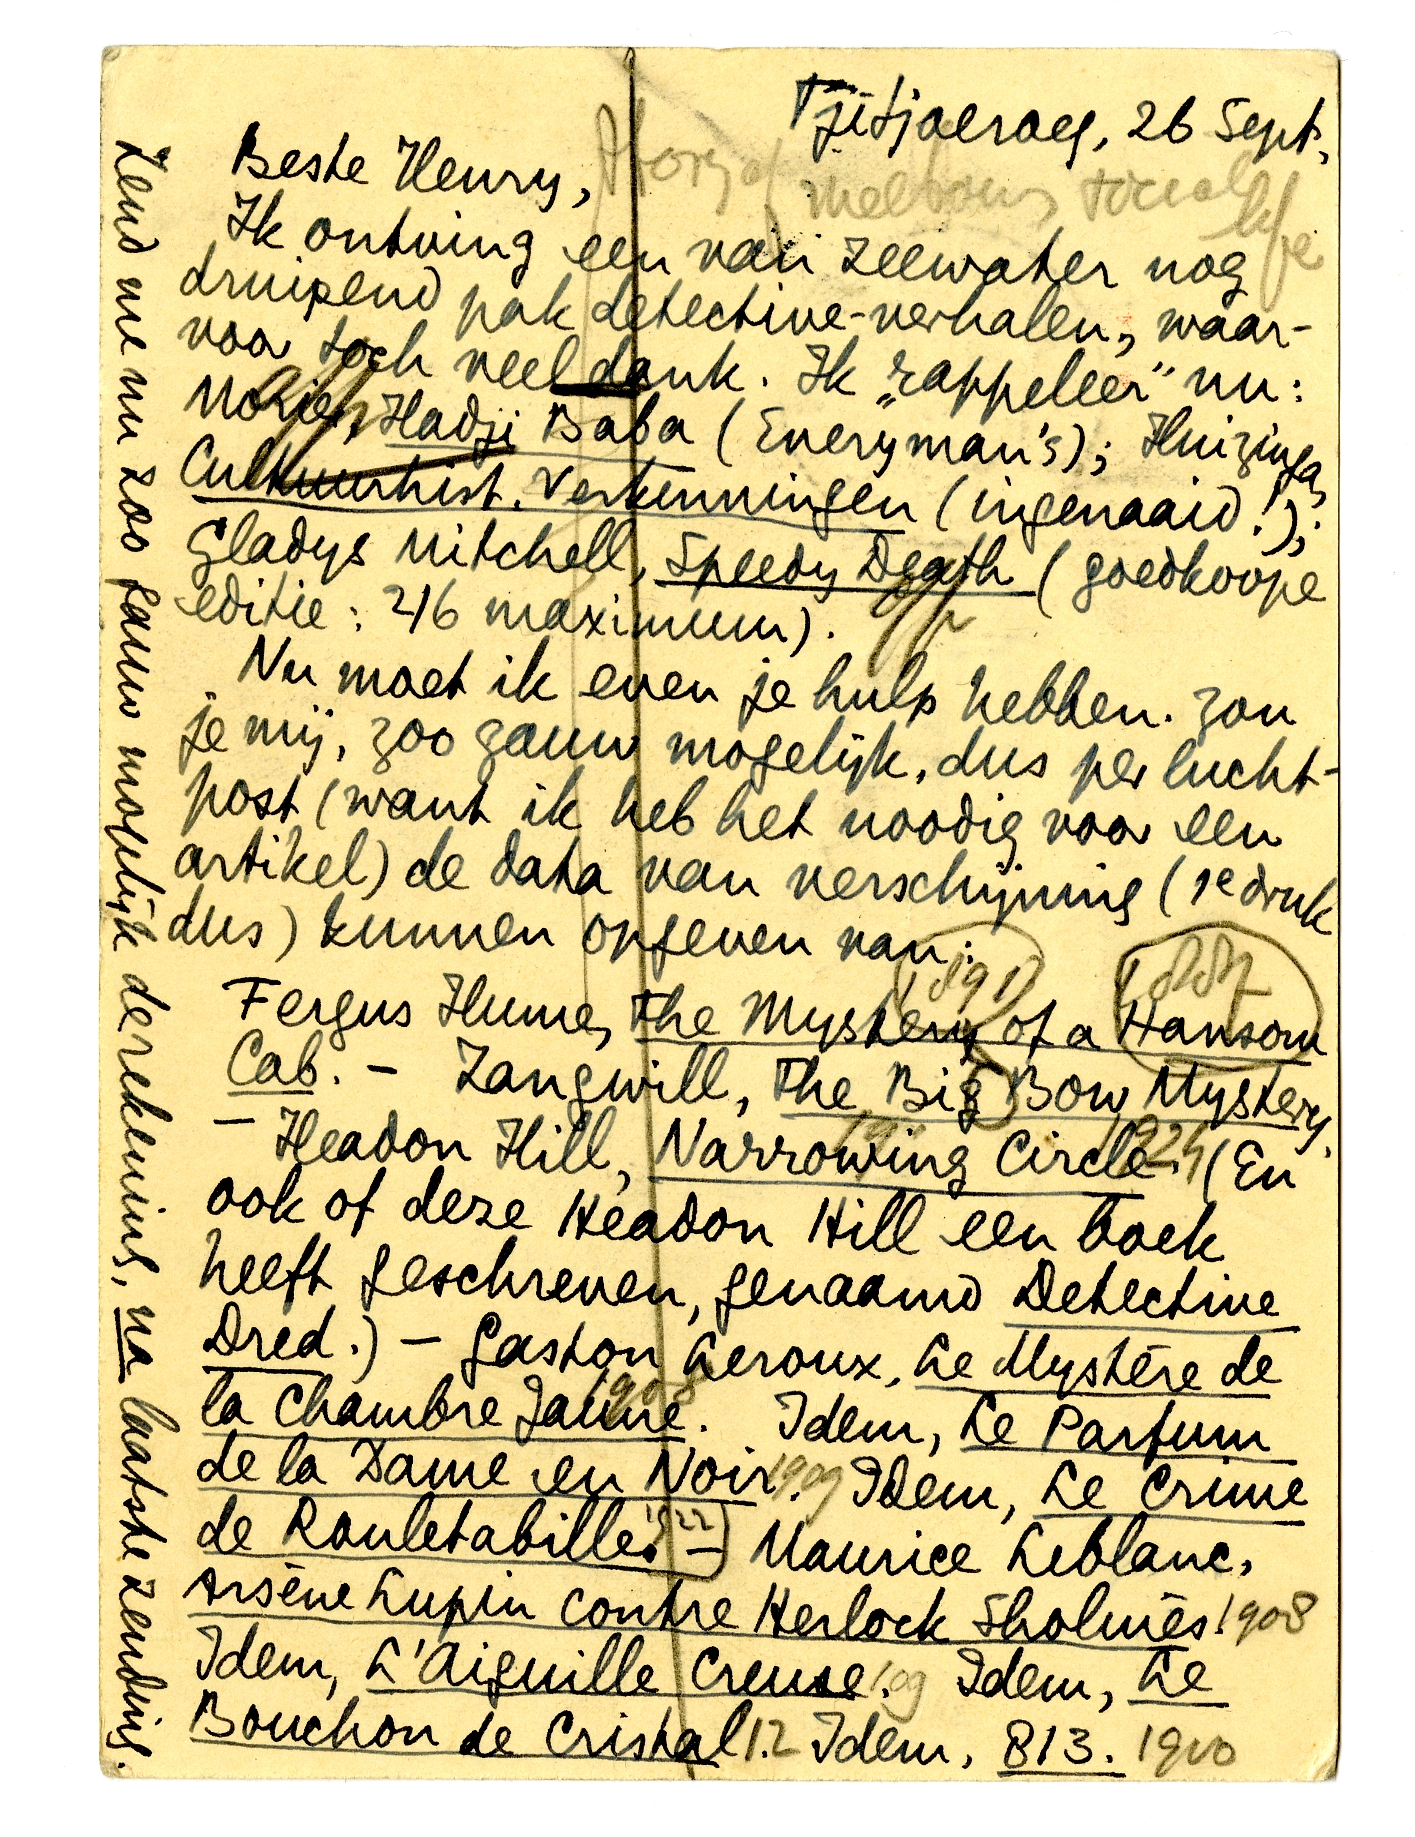 Tjitjoeroeg, 26 Sept.
Story of
melbourne social
life
Beste Henry,
Ik ontving een van zeewater nog
druipend pak detective-verhalen, waar-
voor toch veel dank. Ik „rappeleer” nu:
Morier, Hadji Baba (Everyman's); Huizinga,
Cultuurhist. Verkenningen (ingenaaid!);
Gladys Mitchell, Speedy Death (goedkoope
editie: 2/6 maximum).
Nu moet ik even je hulp hebben. Zou
je mij, zoo gauw mogelijk, dus per lucht-
post (want ik heb het noodig voor een
artikel) de data van verschijning (1e druk
dus) kunnen opgeven van:
1891
1887
Fergus Hume, The Mystery of a Hansom
Cab. – Zangwill, The Big Bow Mystery.
– Headon Hill, Narrowing Circle. 1924 (En
ook of deze Headon Hill een boek
heeft geschreven, genaamd Detective
Dred.) – Gaston Leroux, Le Mystère de
la Chambre Jaune. 1908 Idem, Le Parfum
de la Dame en Noir. 1909 Idem, Le Crime
de Rouletabille. 1922 – Maurice Leblanc,
Arsène Lupin contre Herlock Sholmès. 1908
Idem, L'Aiguille Creuse. 09 Idem, Le
Bouchon de Cristal. 12 Idem, 813. 1910
Zend me nu zoo gauw mogelijk de rekening, na laatste zending.